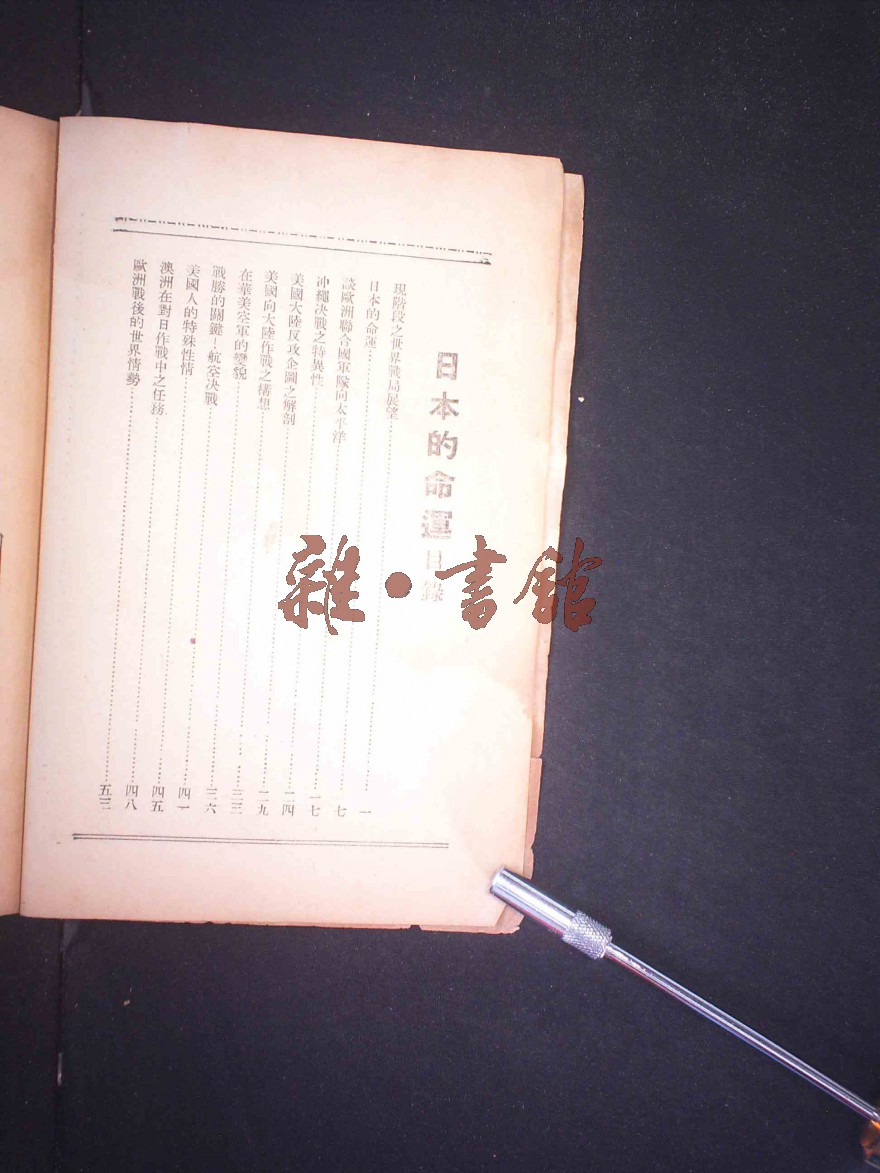 日本的命運 目錄
現階段之世界戰局展望……一
日本的命運……七
談歐洲聯合國軍隊向太平洋……一七
沖繩決戰之特異性……二四
美國大陸反攻企圖之解剖……二九
美國向大陸作戰之構想……三三
在華美空軍的變貌……三六
戰勝的關鍵—航空決戰……四一
美國人的特殊性情……四五
澳洲在對日作戰中之任務……四八
歐洲戰後的世界情勢……五三
雜●書館